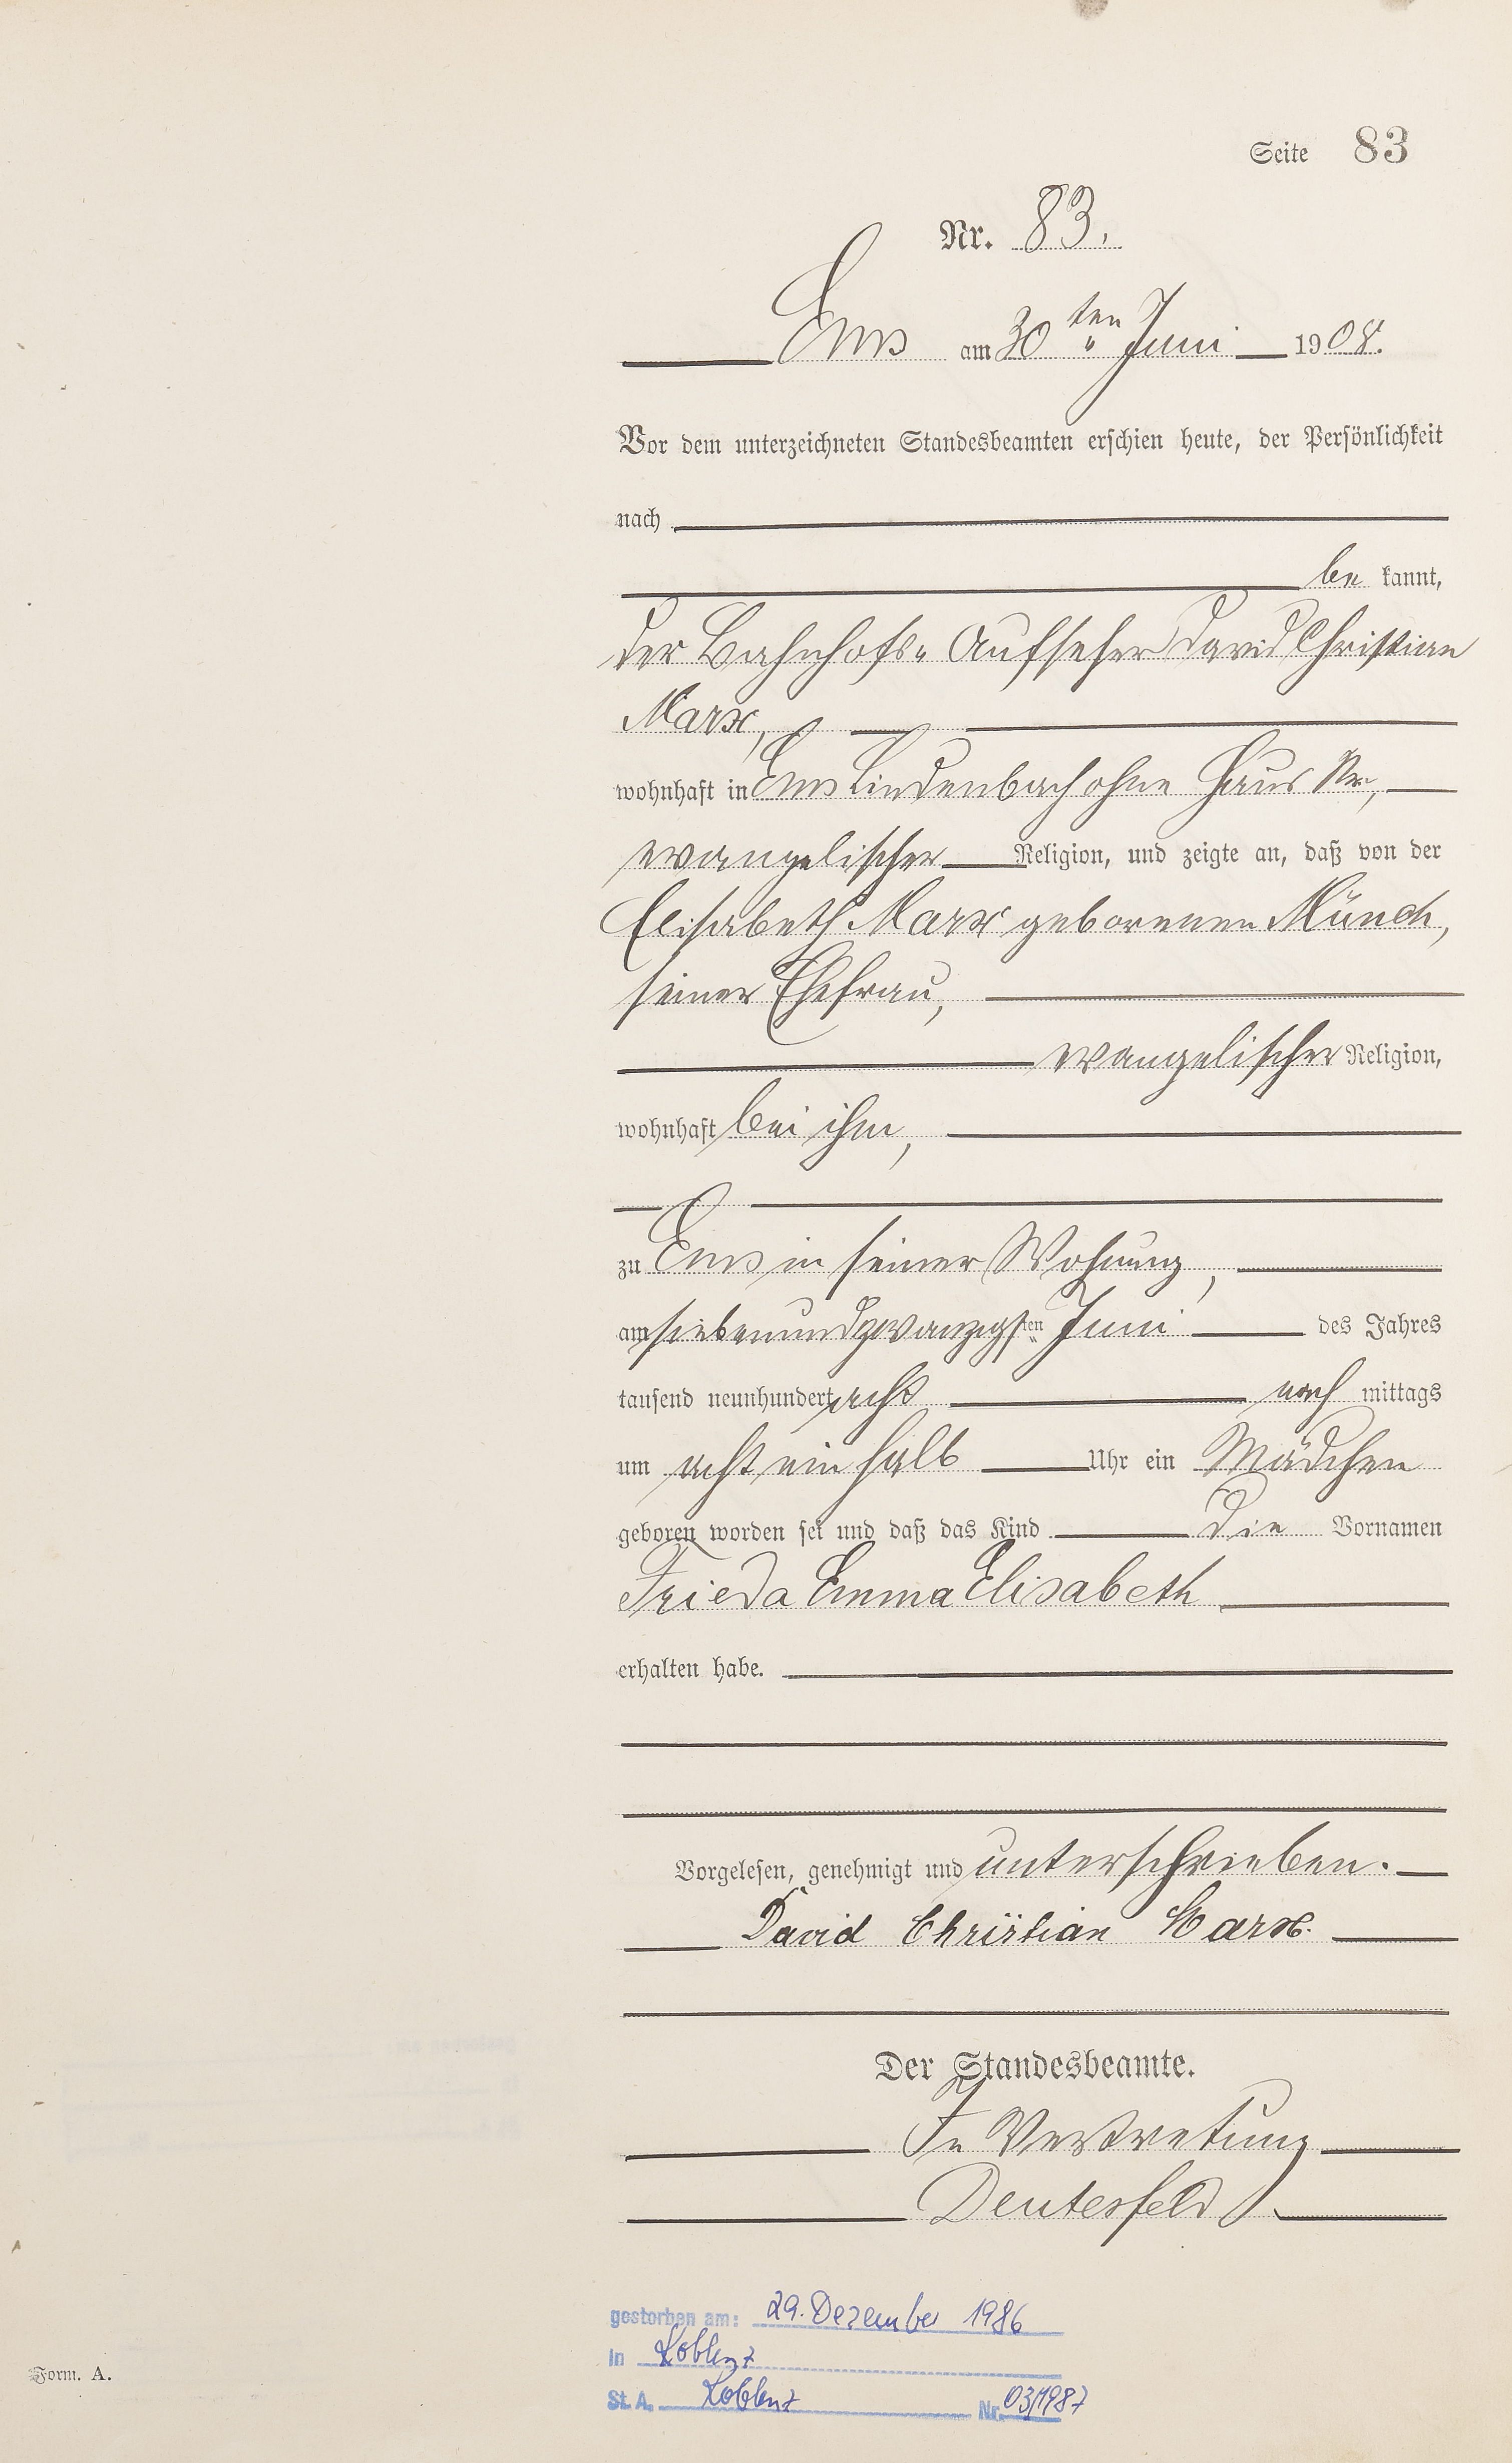 Seite 83
Nr. 83.
Ems am 30ten Juni 1908.
Vor dem unterzeichneten Standesbeamten erschien heute, der Persönlichkeit
nach
be kannt,
der Bahnhofs-Aufseher David Christian
Marx,
wohnhaft in Ems Lindenbach ohne Haus Nr,
evangelischer Religion, und zeigte an, daß von der
Elisabeth Marx geborenen Münch,
seiner Ehefrau,
evangelischer Religion,
wohnhaft bei ihm,
zu Ems in seiner Wohnung,
am siebenundzwanzigsten Juni des Jahres
tausend neunhundert acht nach mittags
um acht ein halb Uhr ein Mädchen
geboren worden sei und daß das Kind die Vornamen
Frieda Emma Elisabeth
erhalten habe.
Vorgelesen, genehmigt und unterschrieben.
David Christian Marx.
Der Standesbeamte.
In Vertretung
Deutesfeld
gestorben am: 29. Dezember 1986
in Koblenz
St. A. Koblenz Nr. 03/1987
Form. A.